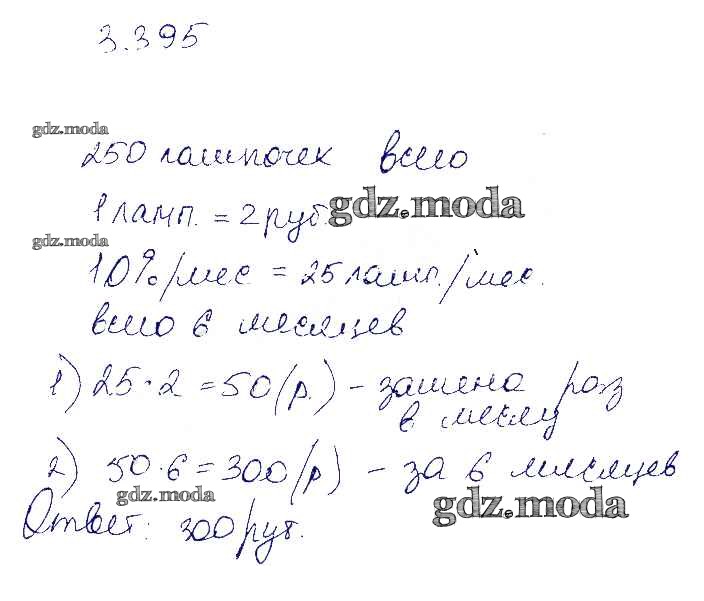 3.395
gdz.moda
250 лампочек всего
1 ламп. = 2 руб.
gdz.moda
gdz.moda
10%/мес = 25 ламп./мес.
всего 6 месяцев
1) 25 · 2 = 50 (р.) – замена раз
в месяц
2) 50 · 6 = 300 (р) – за 6 месяцев
gdz.moda
gdz.moda
Ответ: 300 руб.